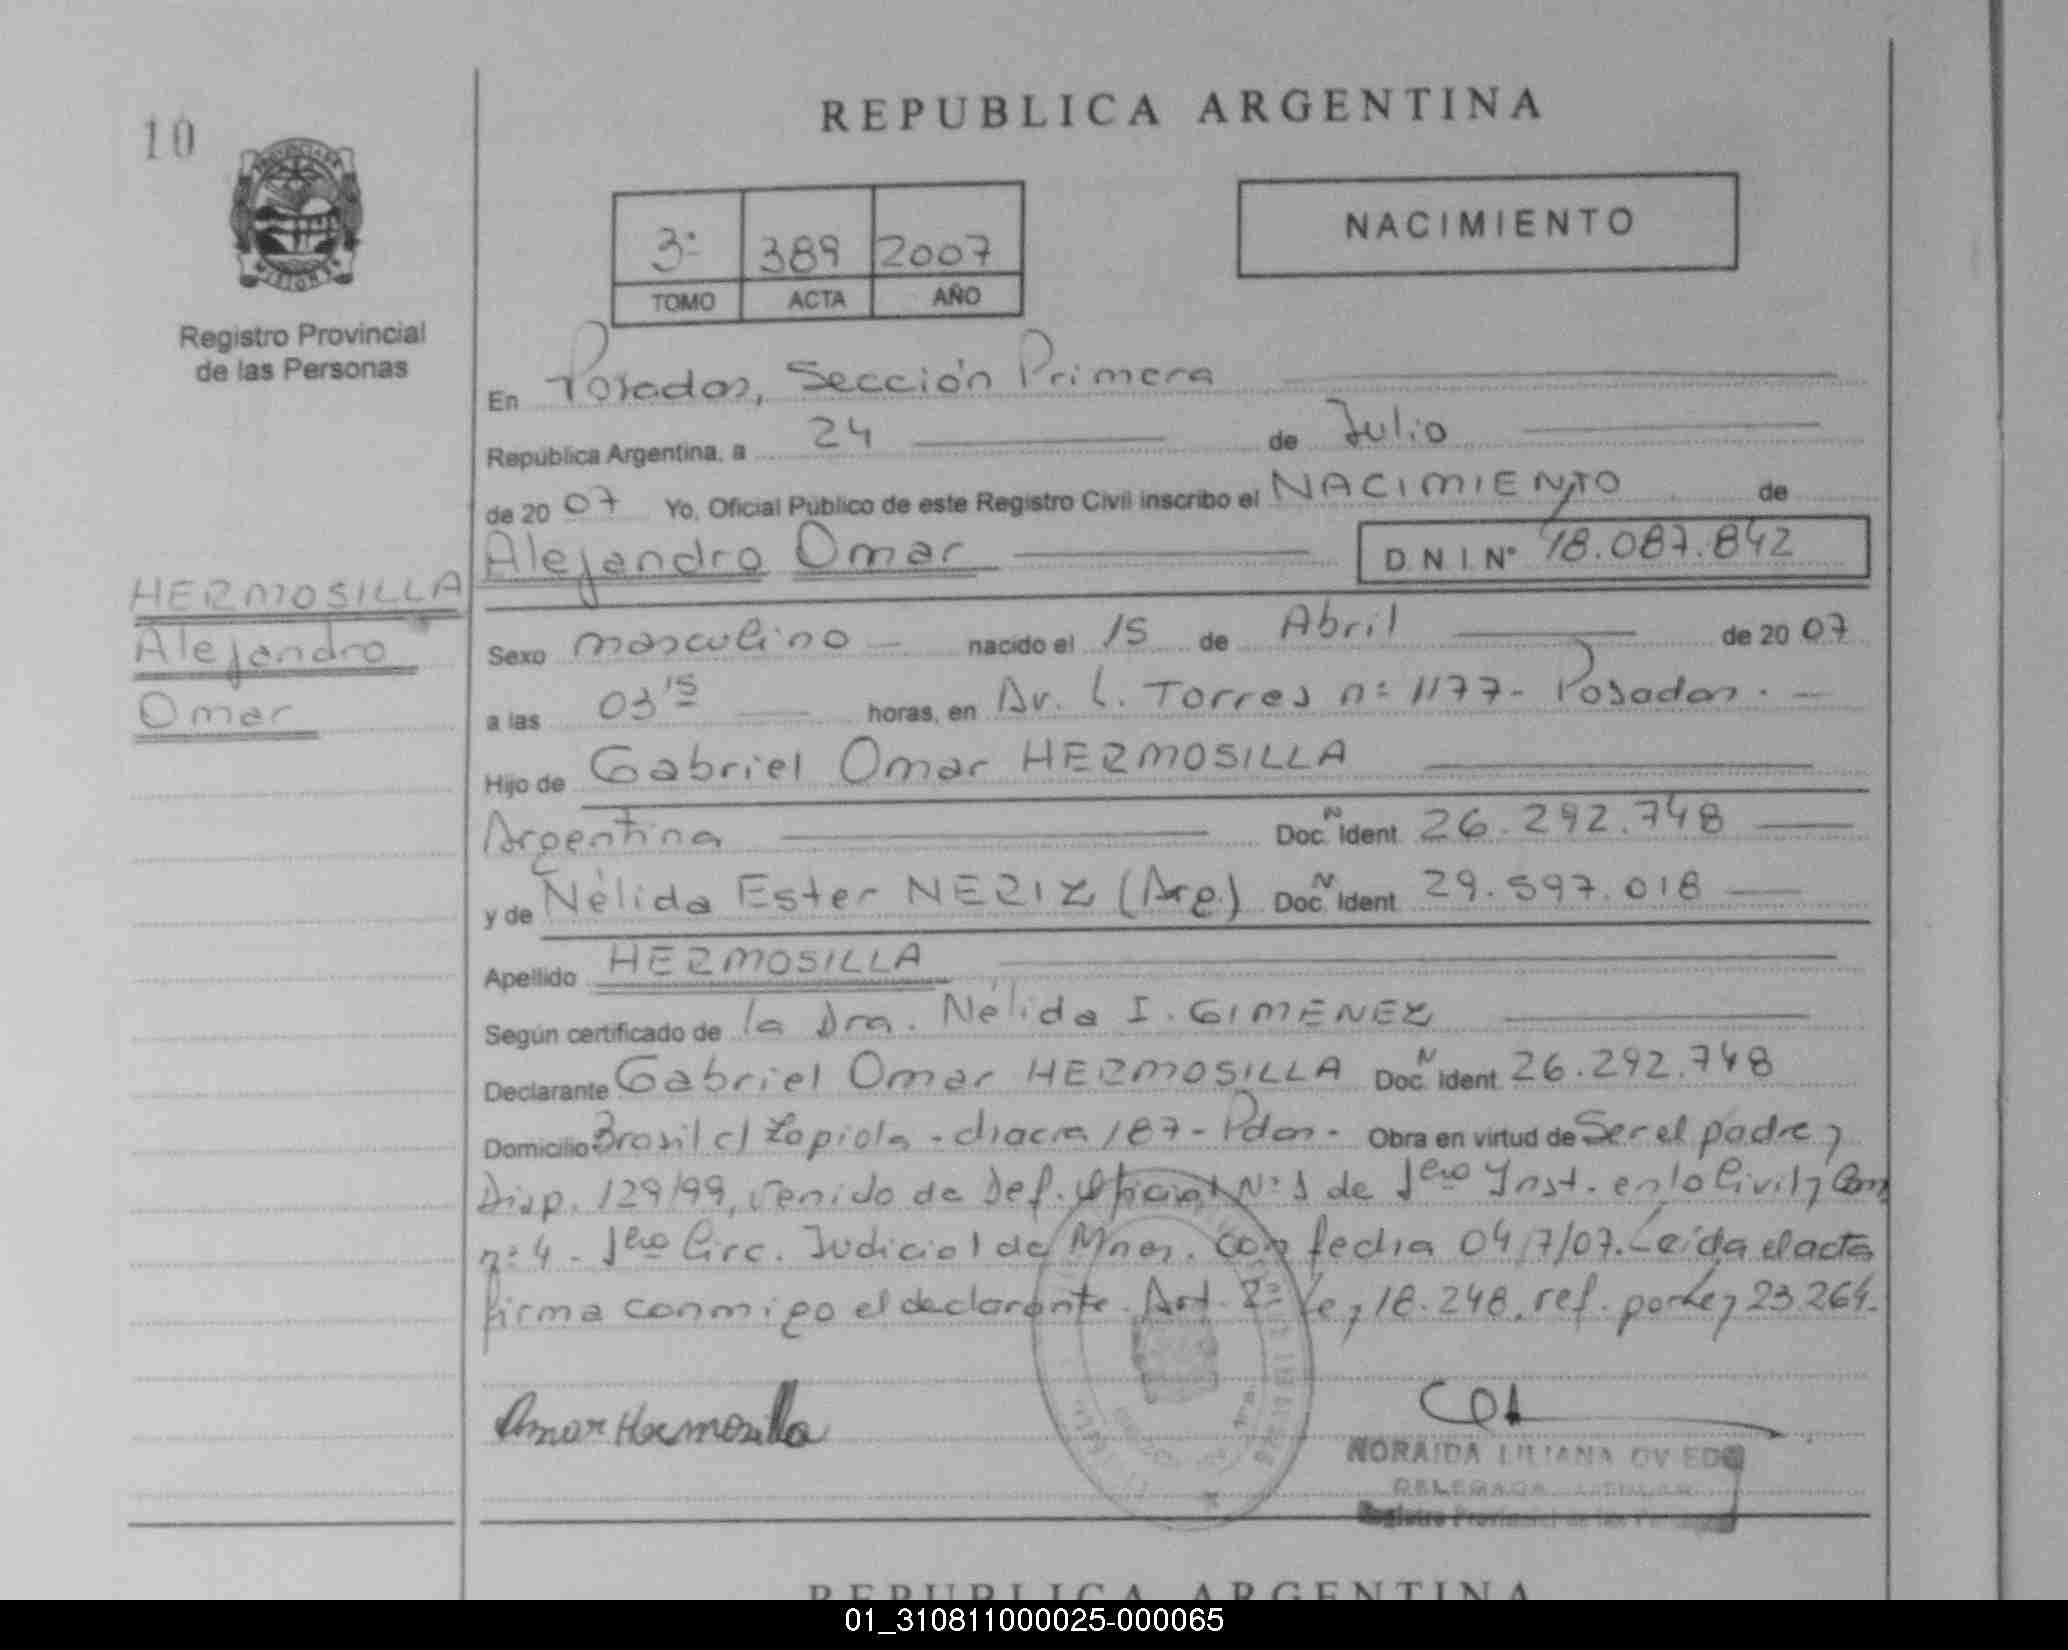 10
REPUBLICA ARGENTINA
3ª 389 2007
TOMO ACTA AÑO
NACIMIENTO
Registro Provincial
de las Personas
En Posadas, Sección Primera
República Argentina, a 24 de Julio
de 2007 Yo, Oficial Público de este Registro Civil inscribo el NACIMIENTO de
Alejandro Omar D N I Nº 48.087.842
HERMOSILLA
Alejandro
Omar
Sexo masculino nacido el 15 de Abril de 2007
a las 03 15 horas, en Av. L. Torres nº 1177 - Posadas.
Hijo de Gabriel Omar HERMOSILLA
Argentina Doc. N Ident 26.292.748
y de Nélida Ester NERIZ (Arg.) Doc. N Ident 29.597.018
Apellido HERMOSILLA
Según certificado de la Dra. Nélida I. GIMENEZ
Declarante Gabriel Omar HERMOSILLA Doc. N Ident 26.292.748
Domicilio Brasil c/ Zapiola - chacra 187 - Pdas. Obra en virtud de Ser el padre y
Disp. 129/99, venido de Def. Oficial Nº 1 de 1era Inst. en lo Civil y Com
nº 4 - 1era Circ. Judicial de Mnes. con fecha 04/7/07. Leída el acta
firma conmigo el declarante. Art. 2º Ley 18.248, ref. por Ley 23.264.
Omar Hermosilla
NORAIDA LILIANA OVIEDO
DELEGADA TITULAR
Registro Provincial de las Personas
REPUBLICA ARGENTINA
01_310811000025-000065